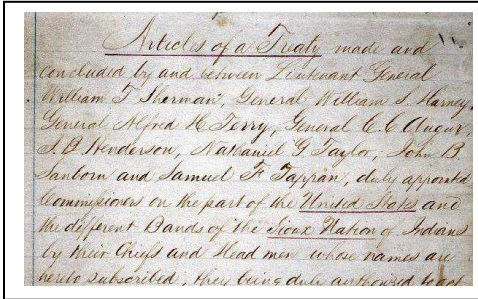 Articles of a Treaty made and
concluded by and between Lieutenant General
William T. Sherman, General William S. Harney,
General Alfred H. Terry, General C. C. Augur,
J. B. Henderson, Nathaniel G. Taylor, John B.
Sanborn and Samuel F. Tappan, duly appointed
Commissioners on the part of the United States and
the different Bands of the Sioux Nation of Indians
by their Chiefs and Head men whose names are
hereto subscribed, they being duly authorized to act